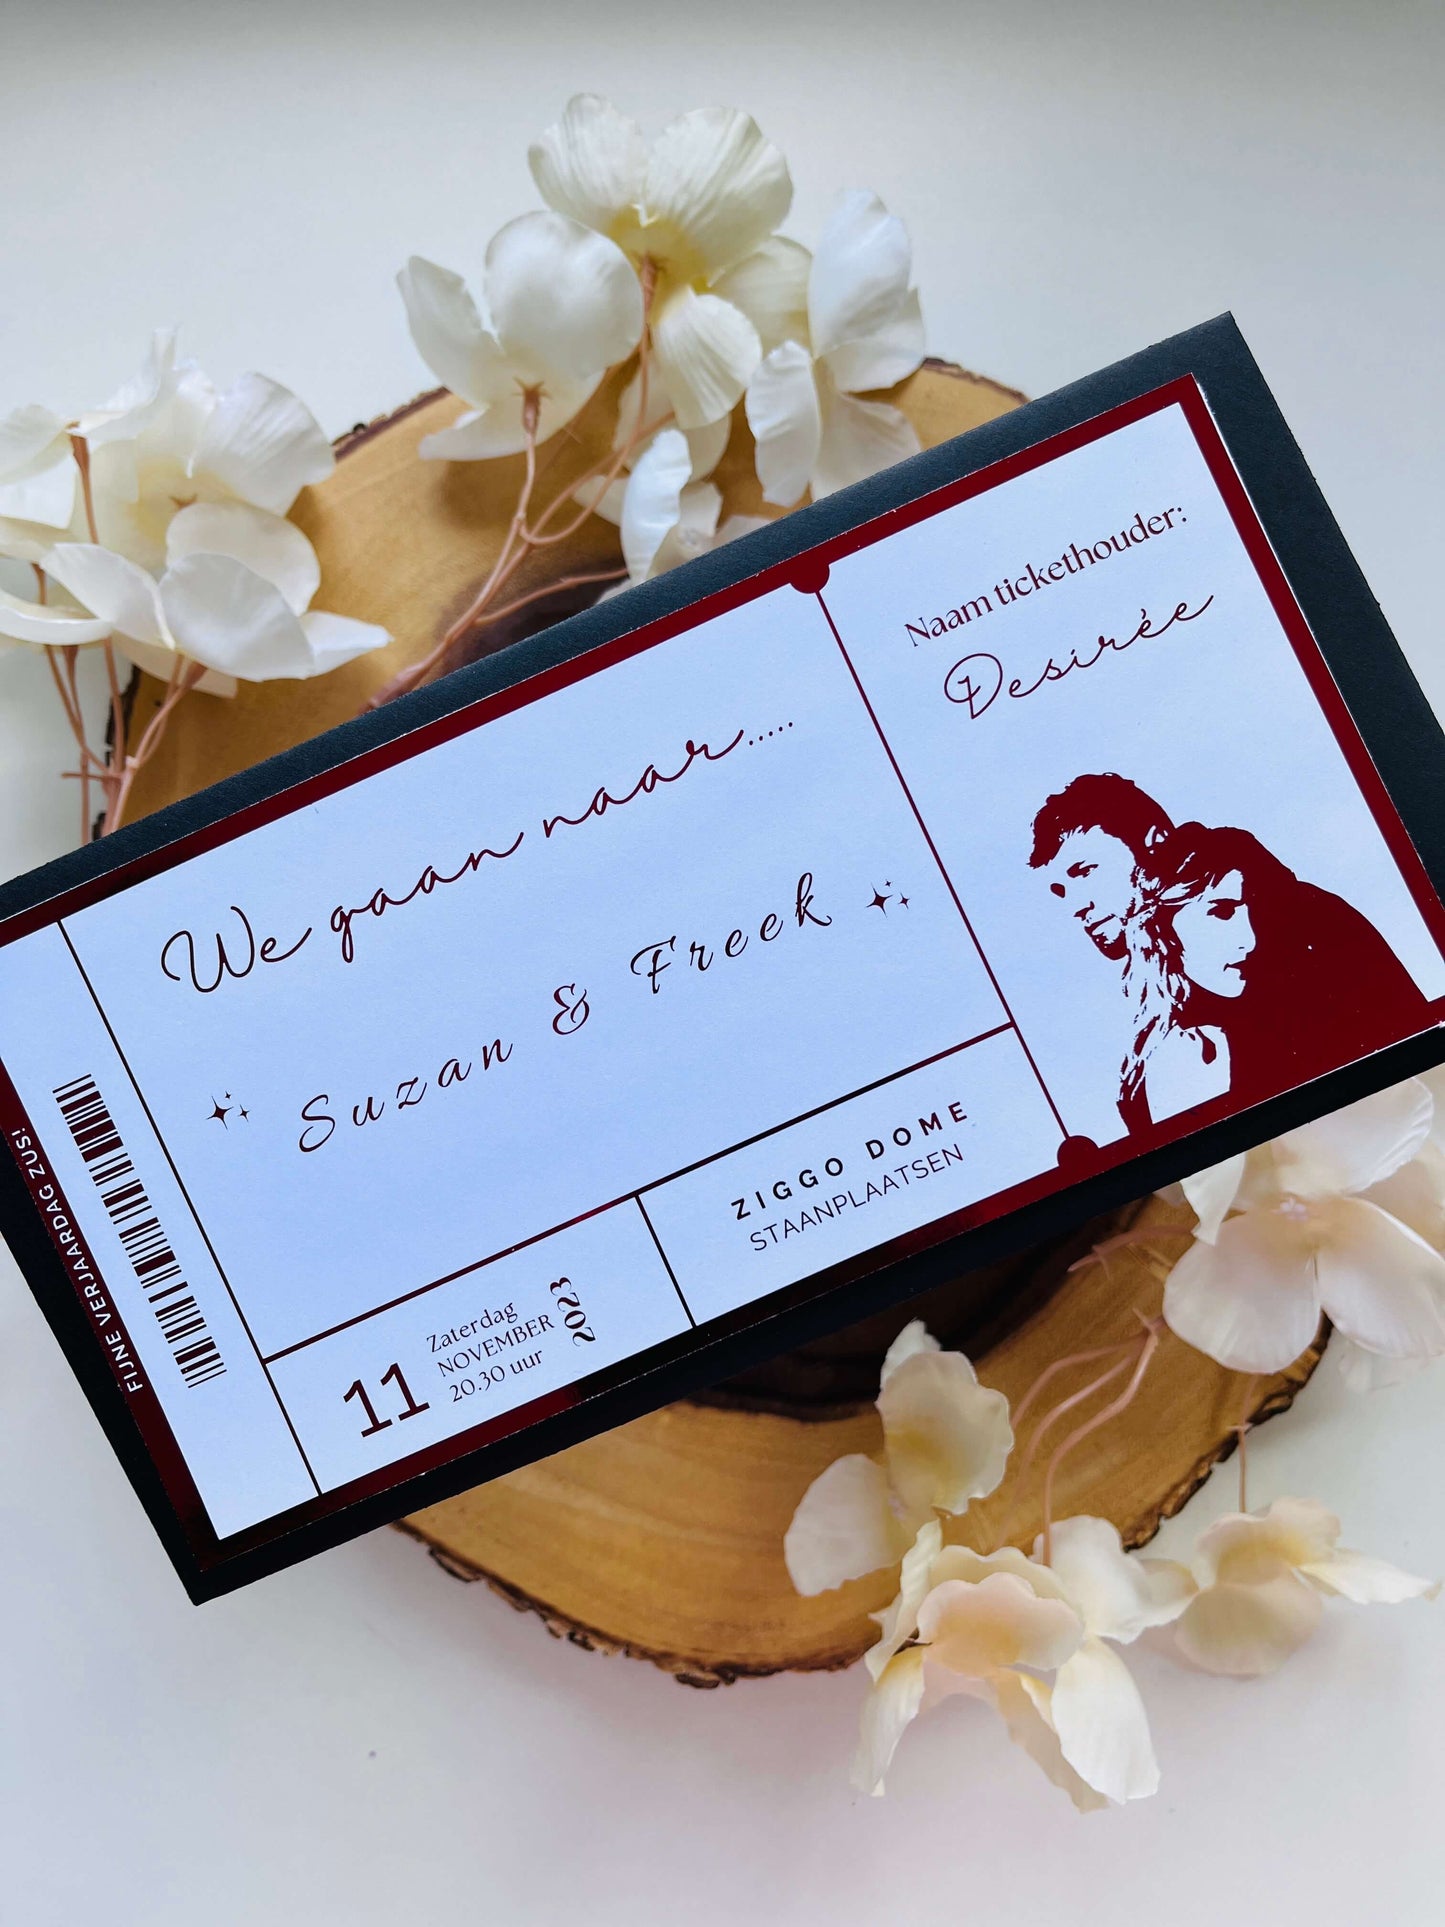 We gaan naar.....
Suzan & Freek
Naam tickethouder:
Desirée
ZIGGO DOME
STAANPLAATSEN
11
Zaterdag
NOVEMBER
20.30 uur
2023
FIJNE VERJAARDAG ZUS!